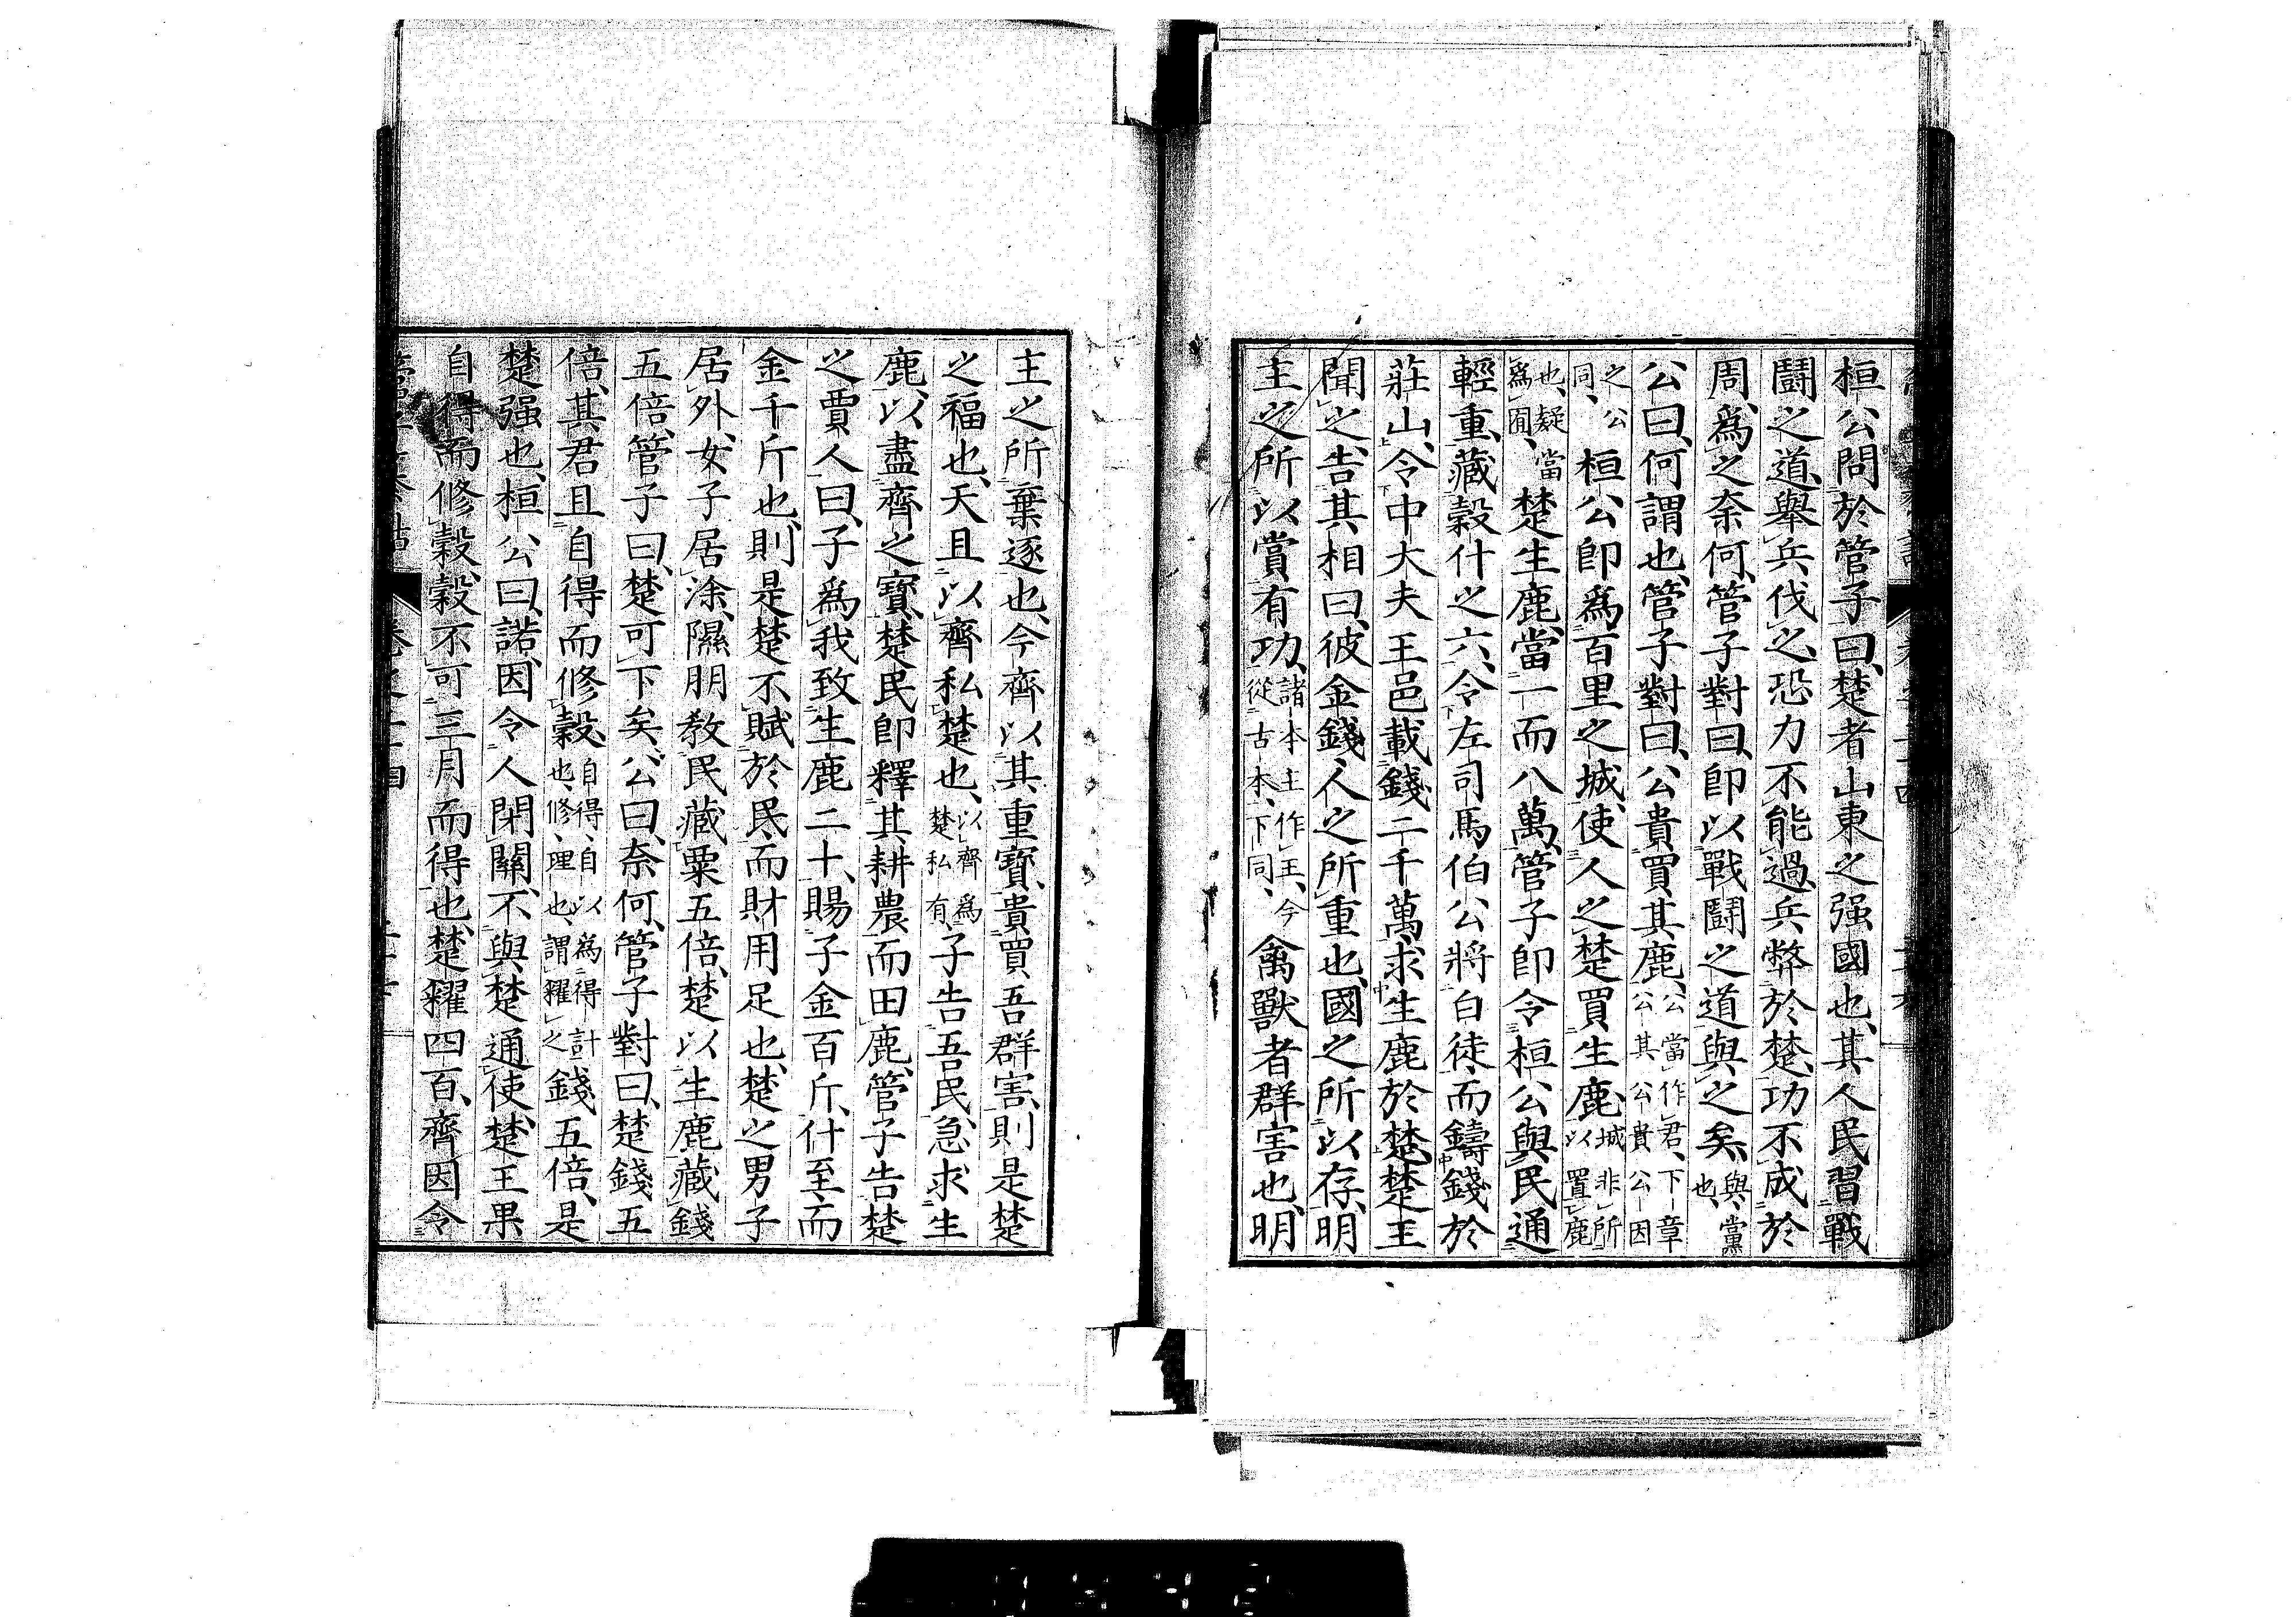 桓公問於管子曰、楚者山東之强國也、其人民習戰
鬪之道、舉兵伐之、恐力不能過、兵弊於楚、功不成於
周、爲之奈何、管子對曰、卽以戰鬪之道與之矣、與、黨也、
公曰、何謂也、管子對曰、公貴買其鹿、公當作君、下章公其公貴公因
之公同、桓公卽爲百里之城、使人之楚買生鹿、城非所以置鹿
也、疑當爲囿、楚生鹿、當一而八萬、管子卽令桓公與民通
輕重、藏穀什之六、令左司馬伯公將白徒、而鑄錢於
莊山、令中大夫王邑載錢二千萬、求生鹿於楚、楚主
聞之、告其相曰、彼金錢、人之所重也、國之所以存、明
主之所以賞有功、諸本主作王、今從古本、下同、禽獸者群害也、明
主之所棄逐也、今齊以其重寶、貴買吾群害、則是楚
之福也、天且以齊私楚也、以齊爲楚私有、子告吾民、急求生
鹿、以盡齊之寶、楚民卽釋其耕農而田鹿、管子告楚
之賈人曰、子爲我致生鹿二十、賜子金百斤、什至而
金千斤也、則是楚不賦於民、而財用足也、楚之男子
居外、女子居涂、隰朋敎民藏粟五倍、楚以生鹿藏錢
五倍、管子曰、楚可下矣、公曰、奈何、管子對曰、楚錢五
倍、其君且自得而修穀、自得、自以爲得計也、修、理也、謂糴之錢五倍、是
楚强也、桓公曰、諾、因令人閉關、不與楚通使、楚王果
自得而修穀、穀不可三月而得也、楚糴四百、齊因令